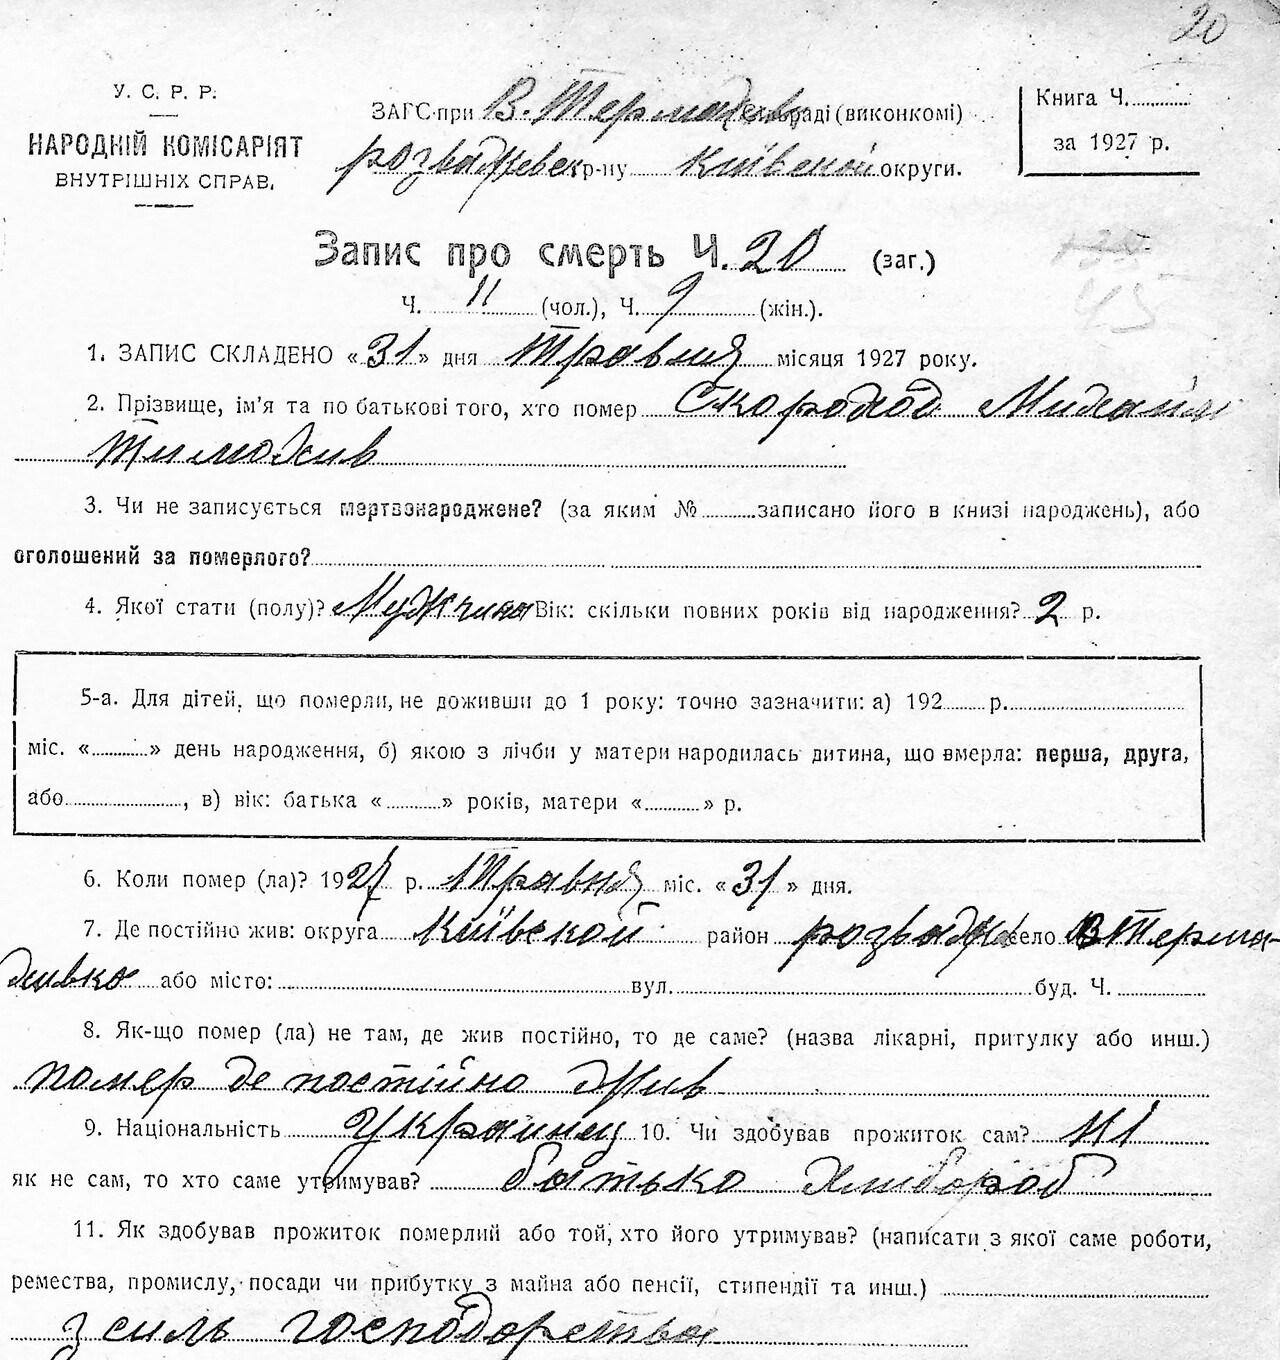 20
У. С. Р. Р.
НАРОДНІЙ КОМІСАРІЯТ
ВНУТРІШНІХ СПРАВ.
ЗАГС при В. раді (виконкомі)
р-ну Київской округи.
Книга Ч.
за 1927 р.
Запис про смерть Ч. 20 (заг.)
45
Ч. 11 (чол.), Ч. 9 (жін.).
1. ЗАПИС СКЛАДЕНО «31» дня Травня місяця 1927 року.
2. Прізвище, ім'я та по батькові того, хто помер Скороход Михайло
3. Чи не записується мертвонароджене? (за яким № записано його в книзі народжень), або
оголошений за померлого?
4. Якої стати (полу)? Мужчина Вік: скільки повних років від народження? 2 р.
5-а. Для дітей, що померли, не доживши до 1 року: точно зазначити: а) 192 р.
міс. « » день народження, б) якою з лічби у матери народилась дитина, що вмерла: перша, друга,
або , в) вік: батька « » років, матери « » р.
6. Коли помер (ла)? 1927 р. Травня міс. «31» дня.
7. Де постійно жив: округа Київской район село
або місто: вул. буд. Ч.
8. Як-що помер (ла) не там, де жив постійно, то де саме? (назва лікарні, притулку або инш.)
помер де постійно жив
9. Національність Украинец 10. Чи здобував прожиток сам? Ні
як не сам, то хто саме утримував? батько Хлібороб
11. Як здобував прожиток померлий або той, хто його утримував? (написати з якої саме роботи,
ремества, промислу, посади чи прибутку з майна або пенсії, стипендії та инш.)
з силь господарства